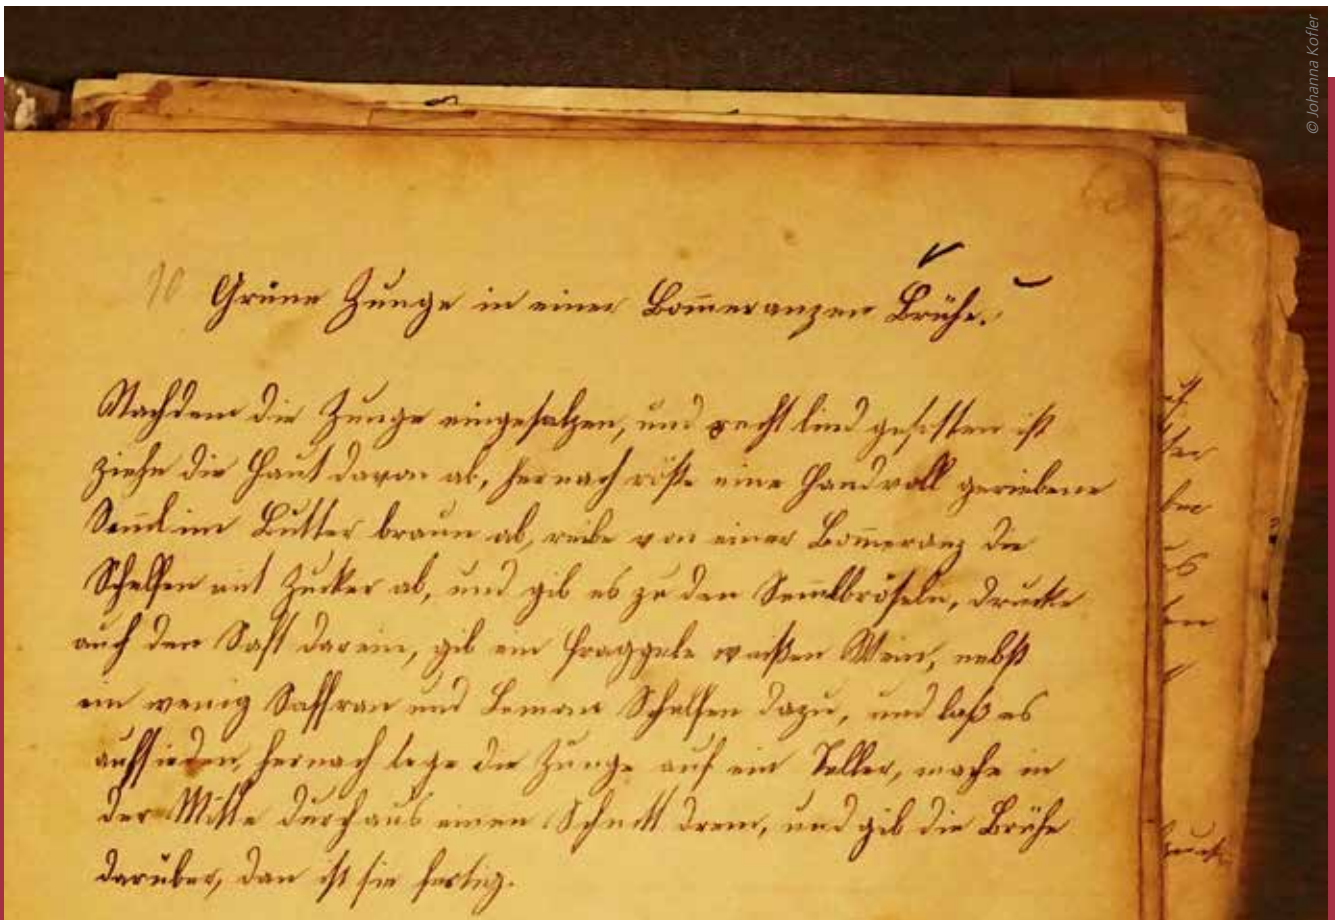 © Johanna Kofler
10 Grüne Zunge in einer Bom̅eranzen Brühe.
Nachdem die Zunge eingesalzen, und recht lind gesotten ist
ziehe die Haut davon ab, hernach röste eine Handvoll geriebene
Sem̅el im Butter braun ab, reibe von einer Bom̅eranz die
Schelfen mit Zucker ab, und gib es zu den Sem̅elbröseln, drucke
auch den Saft darein, gib ein fraggele weißen Wein, nebst
ein wenig Saffran und Lemon Schelfen dazu, und laß es
aufsieden, hernach lege die Zunge auf ein Teller, mache in
der Mitte durchaus einen Schnitt drein, und gib die Brühe
darüber, dan ist sie fertig.